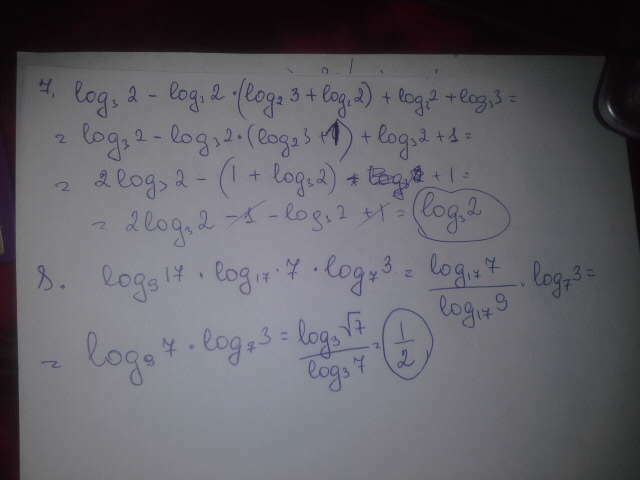 7. log₃ 2 − log₃ 2 · (log₂ 3 + log₂ 2) + log₃ 2 + log₃ 3 =
= log₃ 2 − log₃ 2 · (log₂ 3 + 1) + log₃ 2 + 1 =
= 2 log₃ 2 − (1 + log₃ 2) + 1 =
= 2 log₃ 2 − 1 − log₃ 2 + 1 = log₃ 2
8. log₉ 17 · log₁₇ 7 · log₇ 3 = log₁₇ 7 / log₁₇ 9 · log₇ 3 =
= log₉ 7 · log₇ 3 = log₃ √7 / log₃ 7 = 1/2